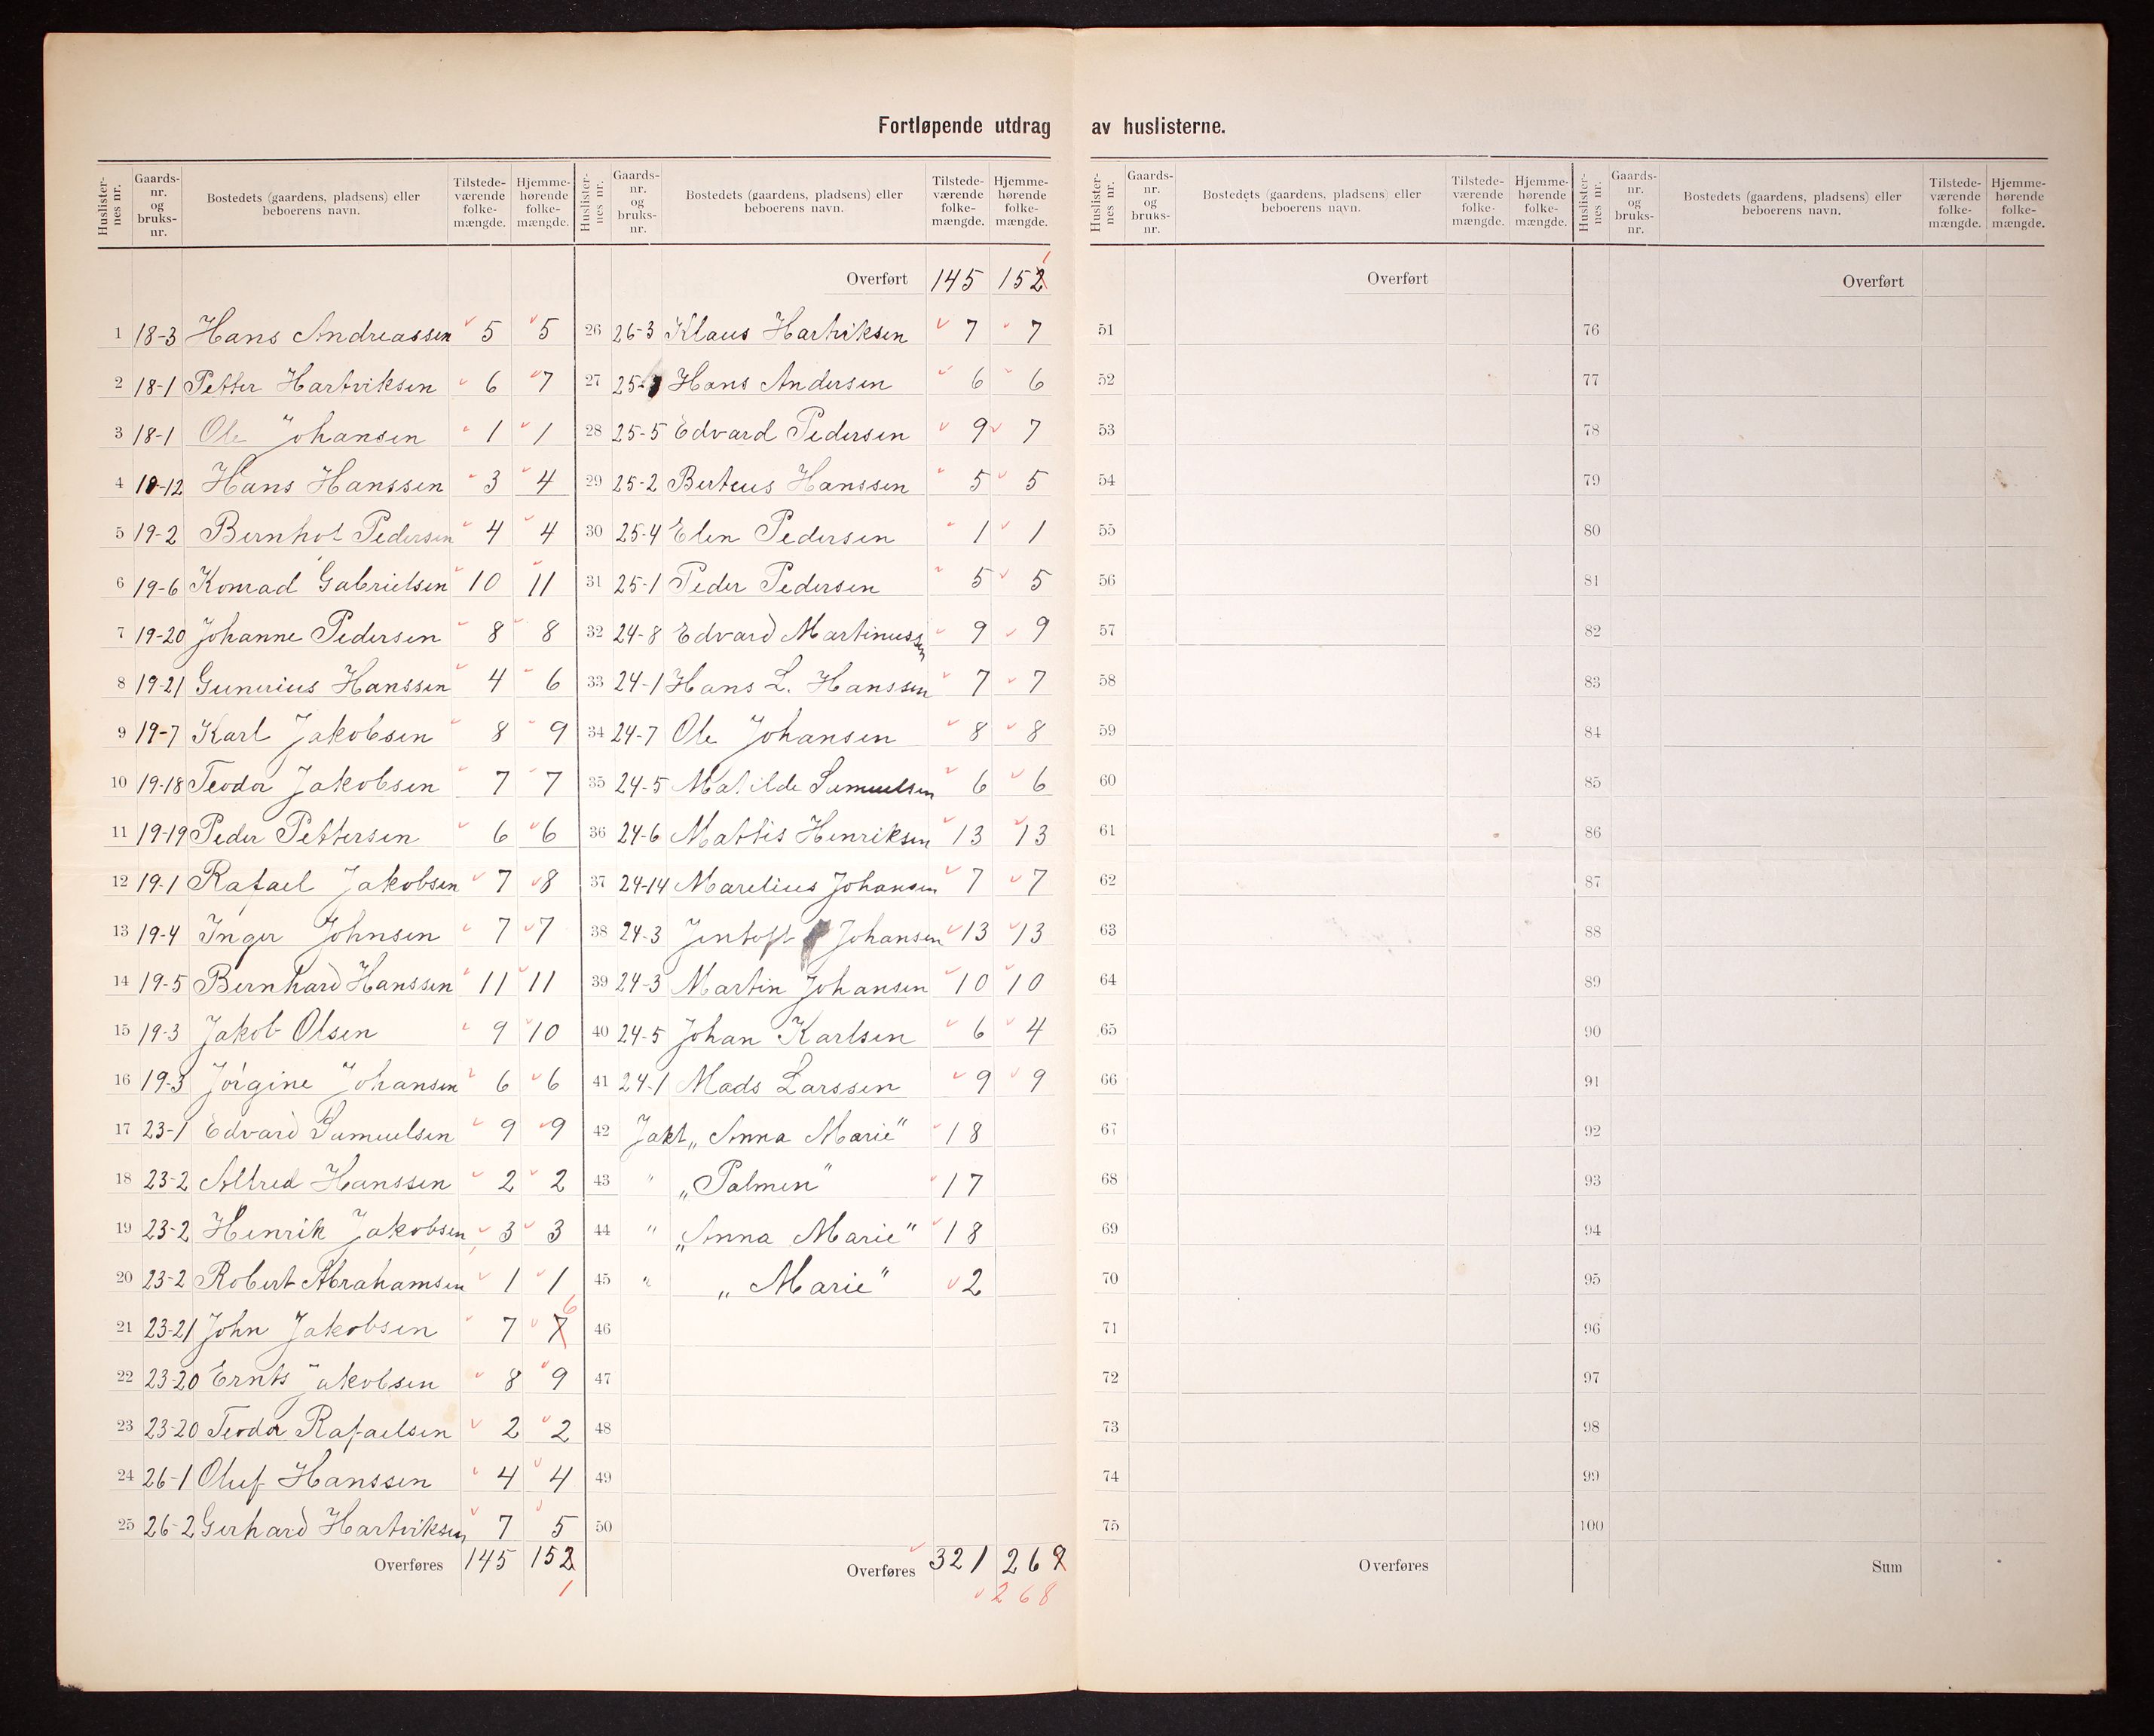 Fortløpende utdrag av huslisterne.
Huslister-nes nr. Gaards-nr. og bruks-nr. Bostedets (gaardens, pladsens) eller beboerens navn. Tilstede-værende folke-mængde. Hjemme-hørende folke-mængde.
1 18-3 Hans Andreassen 5 5
2 18-1 Petter Hartviksen 6 7
3 18-1 Ole Johansen 1 1
4 18-12 Hans Hanssen 3 4
5 19-2 Bernhot Pedersen 4 4
6 19-6 Konrad Gabrielsen 10 11
7 19-20 Johanne Pedersen 8 8
8 19-21 Gunerius Hanssen 4 6
9 19-7 Karl Jakobsen 8 9
10 19-18 Teodor Jakobsen 7 7
11 19-19 Peder Pettersen 6 6
12 19-1 Rafael Jakobsen 7 8
13 19-4 Inger Johnsen 7 7
14 19-5 Bernhard Hanssen 11 11
15 19-3 Jakob Olsen 9 10
16 19-3 Jörgine Johansen 6 6
17 23-1 Edvard Samuelsen 9 9
18 23-2 Alfred Hanssen 2 2
19 23-2 Henrik Jakobsen 3 3
20 23-2 Robert Abrahamsen 1 1
21 23-21 John Jakobsen 7 7 6
22 23-20 Ernts Jakobsen 8 9
23 23-20 Teodor Rafaelsen 2 2
24 26-1 Oluf Hanssen 4 4
25 26-2 Gerhard Hartviksen 7 5
Overføres 145 152 1
Huslister-nes nr. Gaards-nr. og bruks-nr. Bostedets (gaardens, pladsens) eller beboerens navn. Tilstede-værende folke-mængde. Hjemme-hørende folke-mængde.
Overført 145 152 1
26 26-3 Klaus Hartviksen 7 7
27 Hans Andersen 6 6
28 25-5 Edvard Pedersen 9 7
29 25-2 Berteus Hanssen 5 5
30 25-4 Elen Pedersen 1 1
31 25-1 Peder Pedersen 5 5
32 24-8 Edvard Martinussen 9 9
33 24-1 Hans L. Hanssen 7 7
34 24-7 Ole Johansen 8 8
35 24-5 Matilde Samuelsen 6 6
36 24-6 Mattis Henriksen 13 13
37 24-14 Marelius Johansen 7 7
38 24-3 Jentoft Johansen 13 13
39 24-3 Martin Johansen 10 10
40 24-5 Johan Karlsen 6 4
41 24-1 Mads Larssen 9 9
42 Jakt „Anna Marie" 18
43 " „Palmen" 17
44 " „Anna Marie" 18
45 " „Marie" 2
46
47
48
49
50
Overføres 321 269
268
Huslister-nes nr. Gaards-nr. og bruks-nr. Bostedets (gaardens, pladsens) eller beboerens navn. Tilstede-værende folke-mængde. Hjemme-hørende folke-mængde.
Overført
51
52
53
54
55
56
57
58
59
60
61
62
63
64
65
66
67
68
69
70
71
72
73
74
75
Overføres
Huslister-nes nr. Gaards-nr. og bruks-nr. Bostedets (gaardens, pladsens) eller beboerens navn. Tilstede-værende folke-mængde. Hjemme-hørende folke-mængde.
Overført
76
77
78
79
80
81
82
83
84
85
86
87
88
89
90
91
92
93
94
95
96
97
98
99
100
Sum